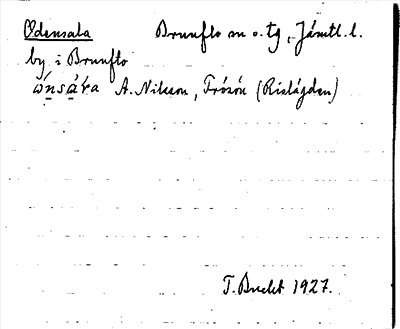 Odensala Brunflo sn o. tg, Jämtl. l.
by i Brunflo
A. Nilsson, Frösön (Rislägden)
1927.